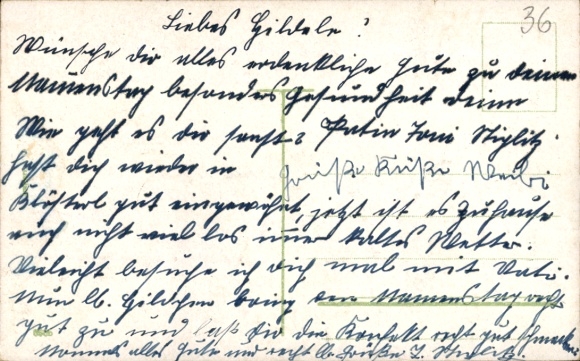 36
Liebes Hildele!
Wünsche dir alles erdenkliche gute zu deinem
Namenstag besonders Gesundheit deine
Wie geht es dir sonst? Patin Toni Stiglitz
hast dich wieder in
Grüße Küße Weibi
Klösterl gut eingewöhnt, jetzt ist es zuhause
auch nicht viel los immer kaltes Wetter.
Vieleicht besuche ich dich mal mit Vati.
Nun lb. Hildchen bring den Namenstag recht
gut zu und laß dir die Konfekt recht gut schmecken
nochmals alles Gute und recht lb. Grüße T.